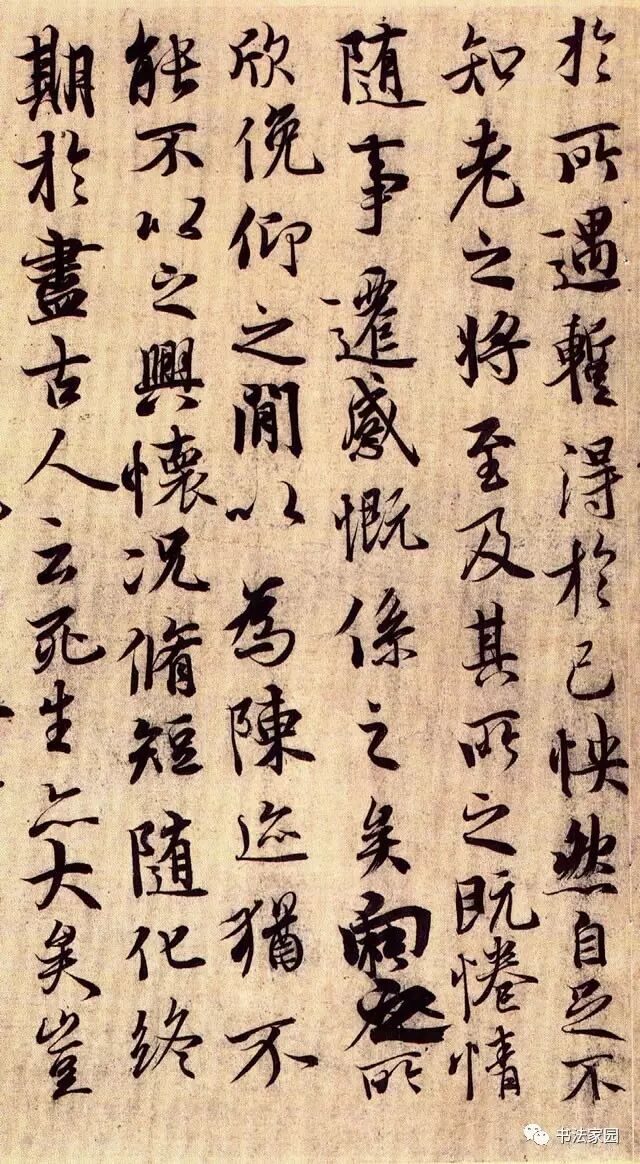 於所遇暫得於己怏然自足不
知老之將至及其所之既惓情
隨事遷感慨係之矣向之所
欣俛仰之閒以為陳迹猶不
能不以之興懷況脩短隨化終
期於盡古人云死生亦大矣豈
书法家园